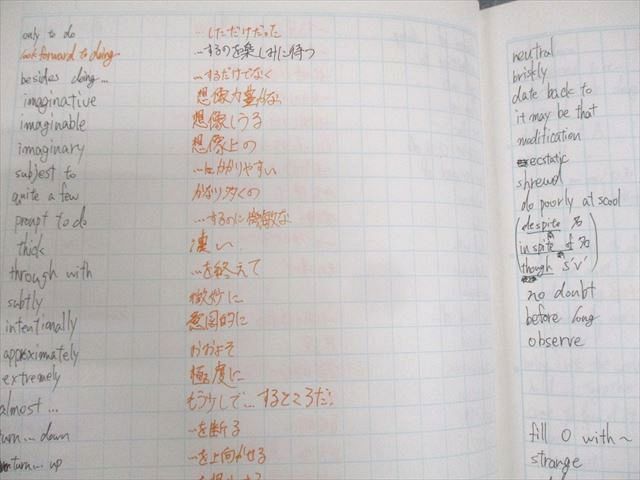 only to do …しただけだった
look forward to doing …するのを楽しみに待つ
besides doing… …するだけでなく
imaginative 想像力豊かな
imaginable 想像しうる
imaginary 想像上の
subject to …にかかりやすい
quite a few かなり多くの
prompt to do …するのに機敏な
thick 濃い
through with …を終えて
subtly 微妙に
intentionally 意図的に
approximately おおよそ
extremely 極度に
almost … もう少しで…するところだ
turn … down …を断る
turn … up …を上向かせる
neutral
briskly
date back to
it may be that
modification
ecstatic
shrewd
do poorly at scool
despite 名
in spite of 名
though s'v'
no doubt
before long
observe
fill O with ~
strange